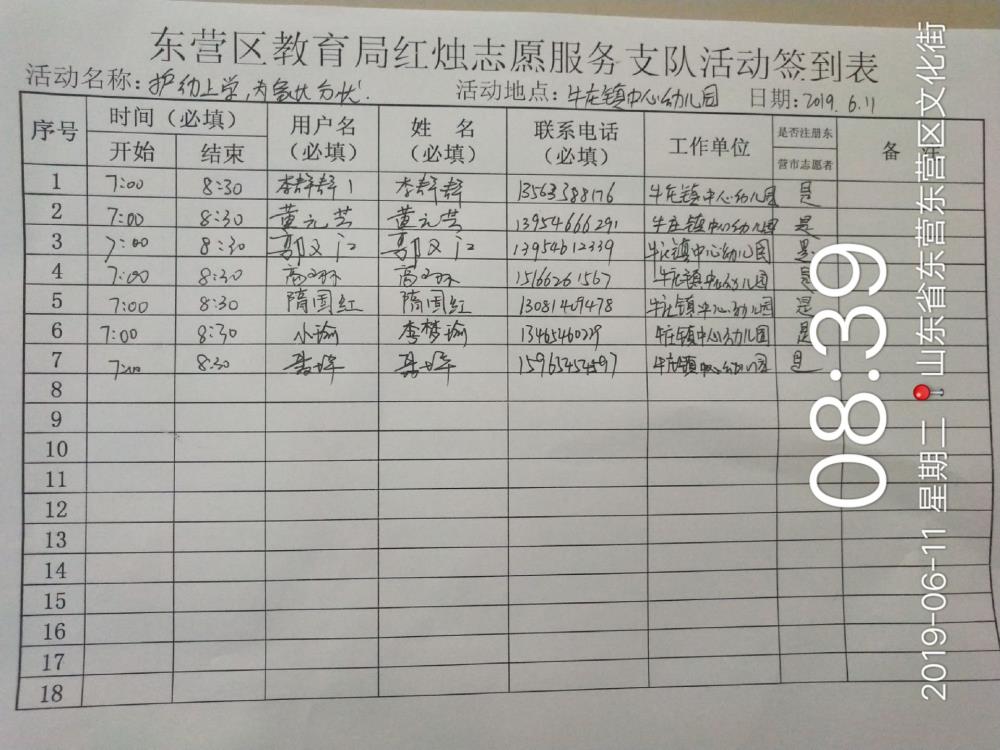 东营区教育局红烛志愿服务支队活动签到表
活动名称：护幼上学，为家长分忧！ 活动地点：牛庄镇中心幼儿园 日期：2019.6.11
序号 时间（必填） 用户名（必填） 姓 名（必填） 联系电话（必填） 工作单位 是否注册东营市志愿者 备 注
开始 结束
1 7:00 8:30 李辞辞1 李辞辞 13563388176 牛庄镇中心幼儿园 是
2 7:00 8:30 黄元芸 黄元芸 13954666291 牛庄镇中心幼儿园 是
3 7:00 8:30 郭文江 郭文江 13954612339 牛庄镇中心幼儿园 是
4 7:00 8:30 高环 高环 15166261567 牛庄镇中心幼儿园 是
5 7:00 8:30 隋国红 隋国红 13081469478 牛庄镇中心幼儿园 是
6 7:00 8:30 小瑜 李梦瑜 13465460229 牛庄镇中心幼儿园 是
7 7:00 8:30 15963454597 牛庄镇中心幼儿园 是
8
9
10
11
12
13
14
15
16
17
18
08:39
2019-06-11 星期二 山东省东营市东营区文化街